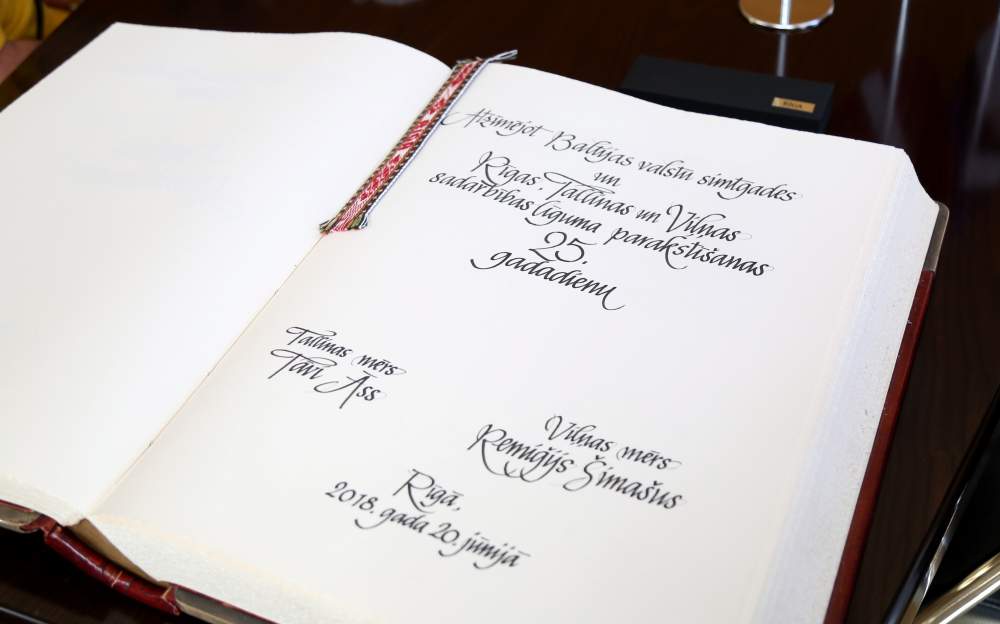 Atzīmējot Baltijas valstu simtgades
un
Rīgas, Tallinas un Viļņas
sadarbības līguma parakstīšanas
25.
gadadienu
Tallinas mērs
Tāvi Āss
Viļņas mērs
Remiģijs Šimašus
Rīgā,
2018. gada 20. jūnijā
RIGA